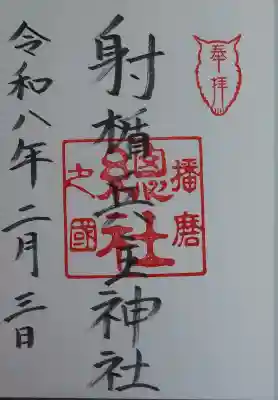 奉拝
射楯兵主神社
播磨
之國
總社
令和八年二月三日